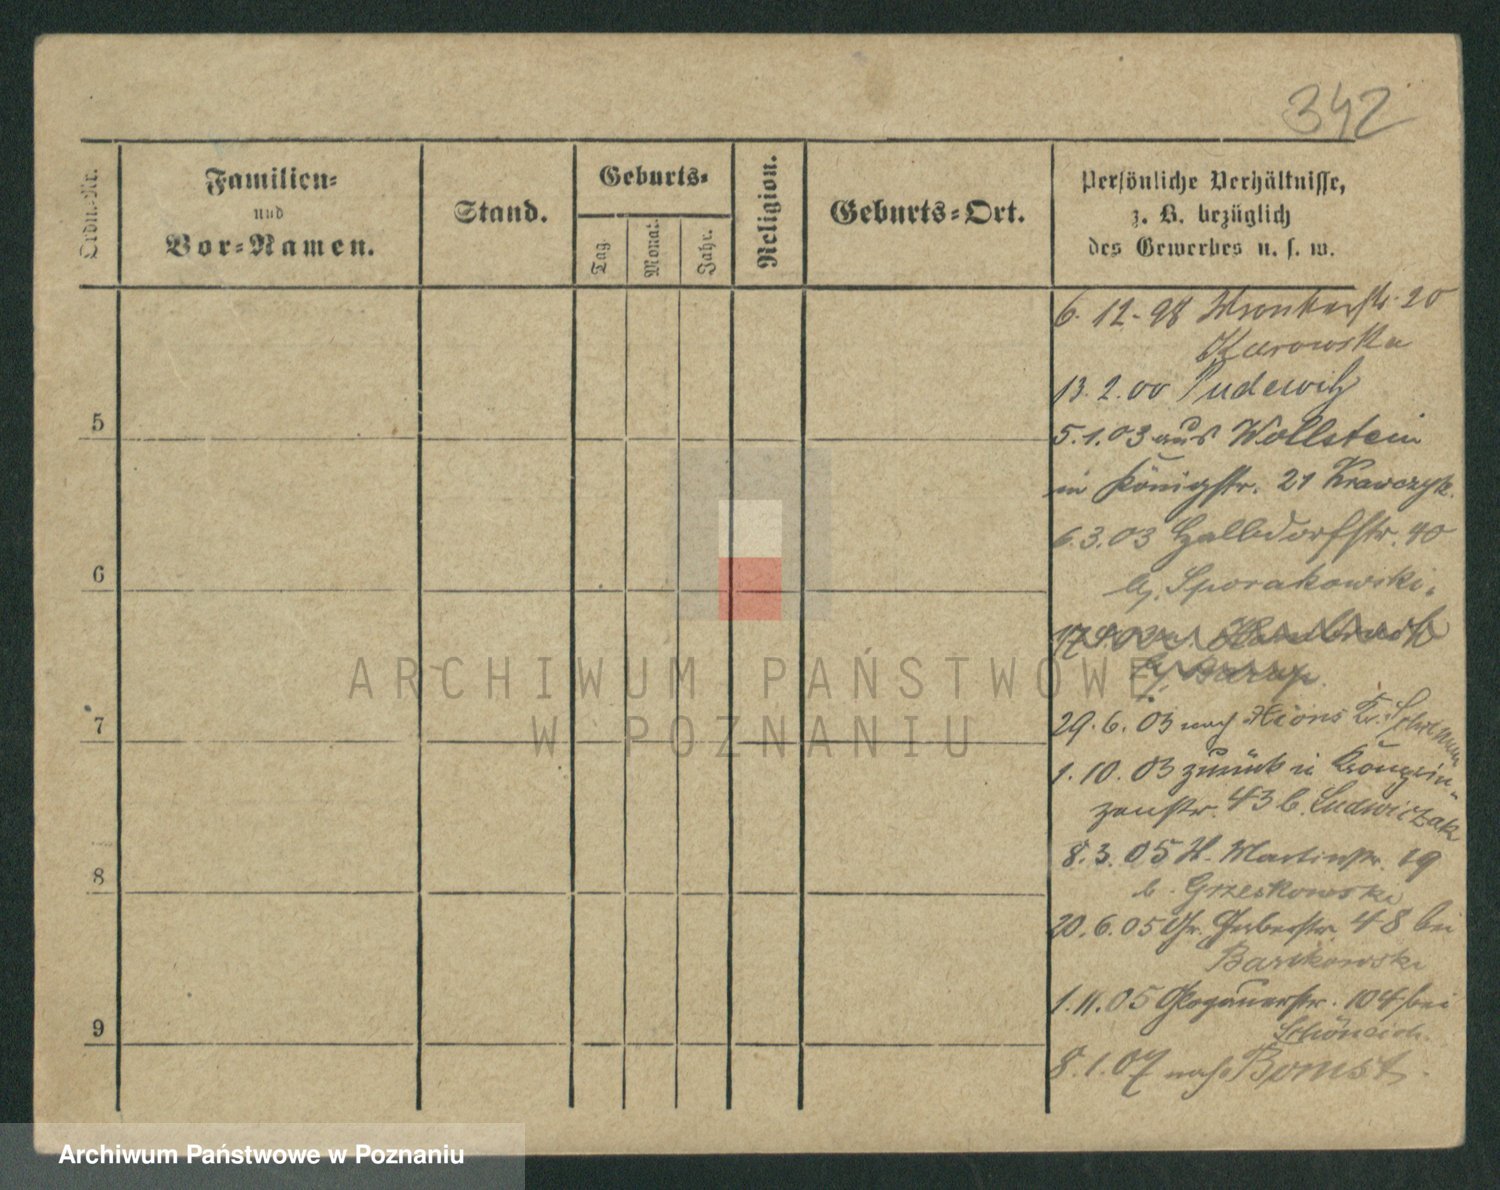 342
Ordn.-Nr.
Familien-
und
Vor-Namen.
Stand.
Geburts-
Tag.
Monat.
Jahr.
Religion.
Geburts-Ort.
Persönliche Verhältnisse,
z. B. bezüglich
des Gewerbes u. s. w.
6. 12. 98 Wronkerstr. 20
Karowska
13. 2. 00 Pudewitz
5
5. 1. 03 aus Wollstein
in Königstr. 21 Krawczyk.
6. 3. 03 Halbdorfstr. 40
6
b. Sporakowski.
ARCHIWUM PAŃSTWOWE
W POZNANIU
7
29. 6. 03 nach Xions Kr. Schrimm
1. 10. 03 zurück in Kronprin-
zenstr. 43 b. Ludwiczak
8
8. 3. 05 St. Martinstr. 19
b. Grzeskowski
20. 6. 05 Gr. Gerberstr. 48 bei
Bartkowski
9
1. 11. 05 Glogauerstr. 104 bei
Schöneich.
8. 1. 07 nach Bomst.
Archiwum Państwowe w Poznaniu